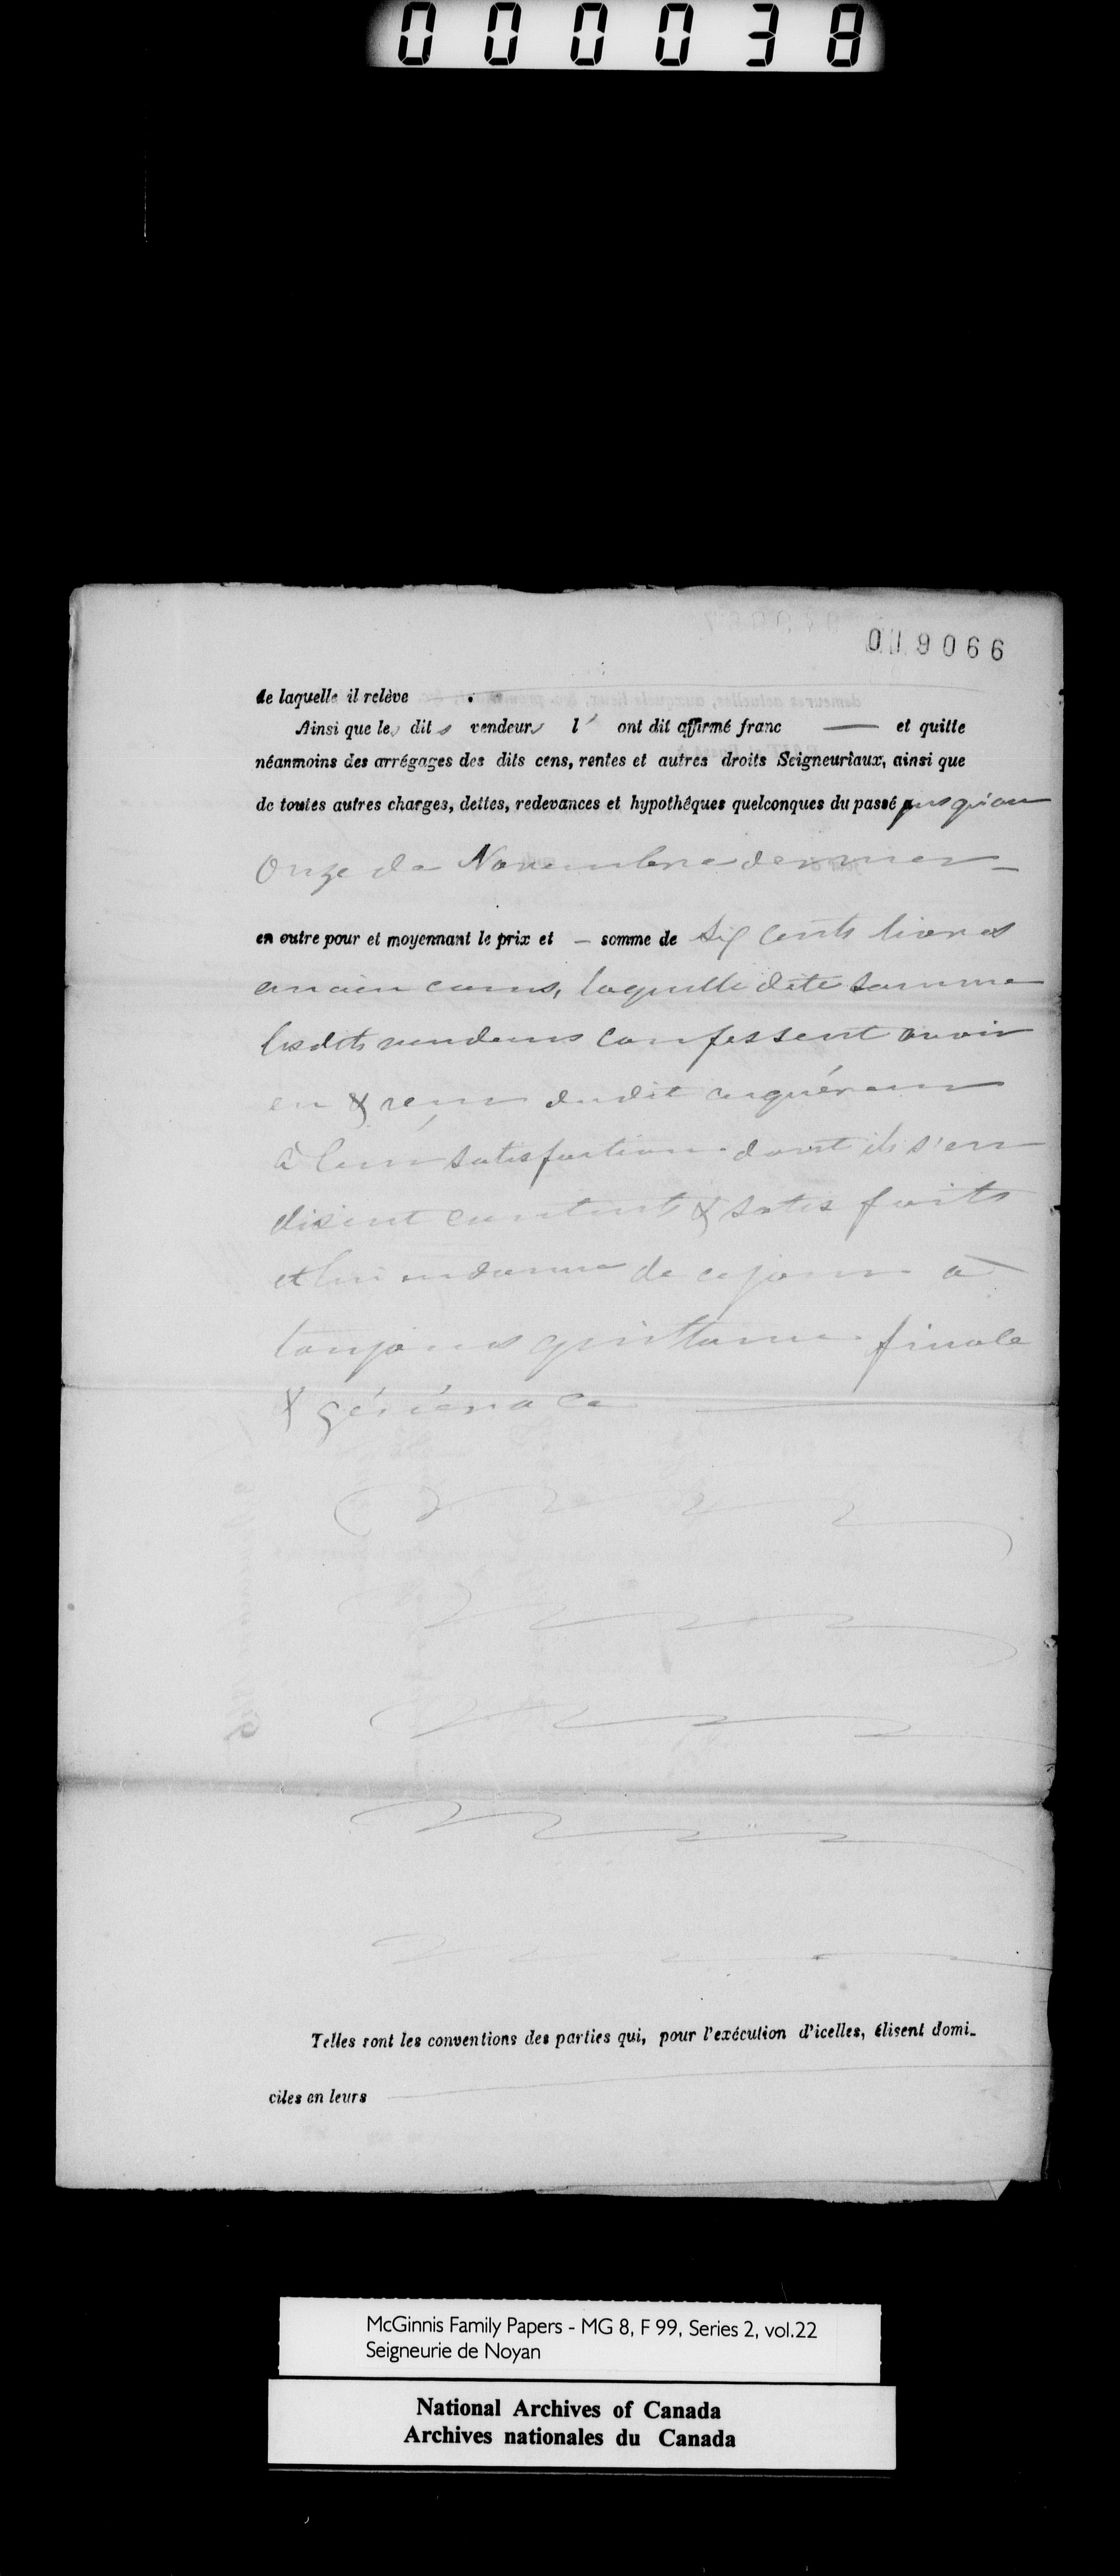 000038
019066
de laquelle il relève .
Ainsi que les dits vendeurs l' ont dit affirmé franc — et quitte
néanmoins des arrégages des dits cens, rentes et autres droits Seigneuriaux, ainsi que
de toutes autres charges, dettes, redevances et hypothêques quelconques du passé jusqu'au
Onze de Novembre dernier —
en outre pour et moyennant le prix et — somme de six cents livres
ancien cours, laquelle dite somme
lesdits vendeurs confessent avoir
eu & reçu dudit acquéreur
à leur satisfaction dont ils s'en
disent contents & satisfaits
et lui en donne de ce jour à
toujours quittance finale
& générale
Telles sont les conventions des parties qui, pour l'exécution d'icelles, élisent domi-
ciles en leurs
McGinnis Family Papers - MG 8, F 99, Series 2, vol.22
Seigneurie de Noyan
National Archives of Canada
Archives nationales du Canada